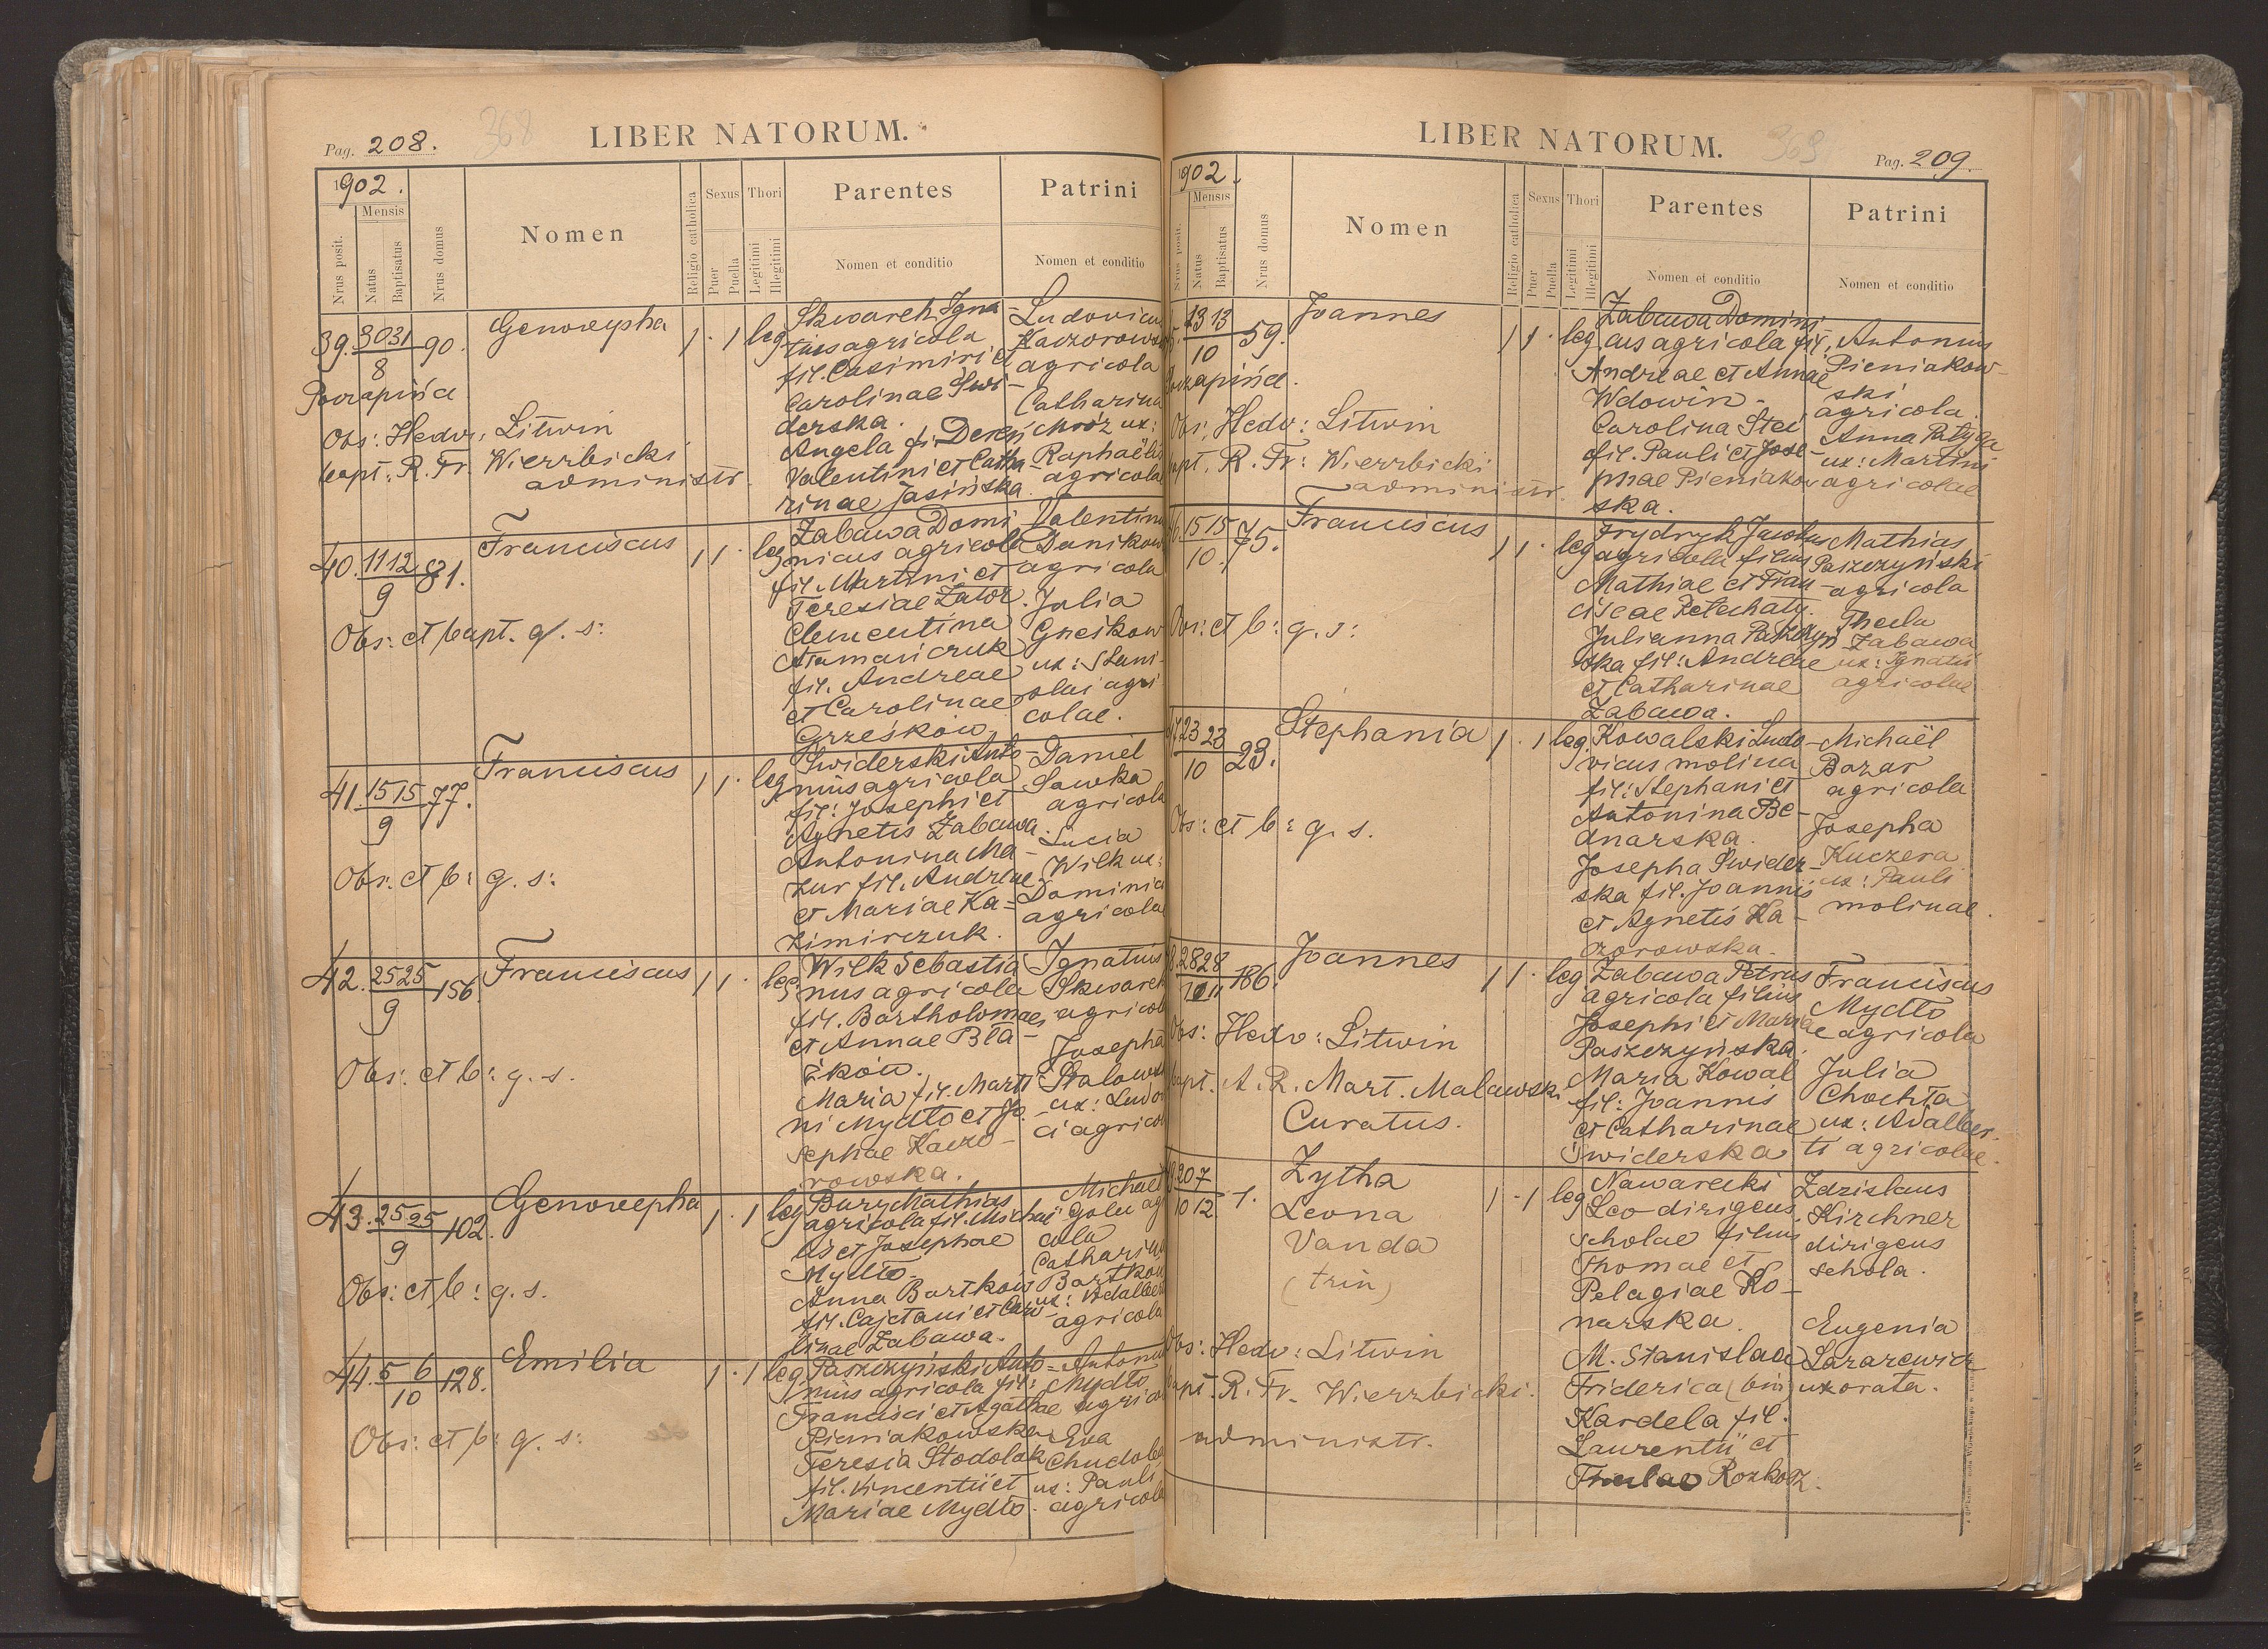 Pag. 208.
368
LIBER NATORUM.
1902.
Nrus posit.
Mensis
Natus
Baptisatus
Nrus domus
Nomen
Religio catholica
Sexus
Puer
Puella
Thori
Legitimi
Illegitimi
Parentes
Nomen et conditio
Patrini
Nomen et conditio
39. 30 31 90. Genovepha 1 . 1 leg
8
Obs: Hedv: Litwin
bapt. R. Fr. Wierzbicki
administr.
Skwarek Igna
tius agricola
fil. Casimiri et
Carolinae Swi-
derska.
Angela fi. Dereń
Valentini et Catha
rinae Jasińska
Ludovicus
Kaczorowski
agricola
Catharina
Mróz ux:
Raphaëlis
agricola
40. 11 12 81. Franciscus 1 1 . leg
9
Obs: et bapt. q. s:
Zabawa Domi
nicus agricola
fil. Martini et
Teresiae Zator.
Clementina
Atamańczuk
fil. Andreae
et Carolinae
Grześków
Valentinu
Danikow
agricola
Julia
Gneikow
ux: Stani-
slai agri
colae.
41. 15 15 77. Franciscus 1 1 . leg
9
Obs: et b: q. s:
Swiderski Anto
nius agricola
fil: Josephi et
Agnetis Zabawa.
Antonina Ma-
zur fil. Andreae
et Mariae Ka=
zimirczuk.
Daniel
Sawka
agricola
Lucia
Wilk ux:
Dominici
agricolae
42. 25 25 156 Franciscus 1 1 . leg.
9
Obs: et b: q. s.
Wilk Sebastia
nus agricola
fil. Bartholomaei
et Annae Bła-
żków.
Maria fil. Marti
ni Mydło et Jo-
sephae Kaczo-
rowska.
Ignatius
Skwarek
agricola
Josepha
ux: Ludovi
ci agricol
43. 25 25 102. Genovepha 1 . 1 leg
9
Obs: et b: q. s.
Bury Mathias
agricola fil. Michaë
lis et Josephae
Mydło.
Anna Bartków
fil. Cajetani et Caro
linae Zabawa.
Michaël
Golec ag
cola
Catharina
Bartkow
ux: Adalberti
agricola
44. 5 6 128. Emilia 1 . 1 leg
10
Obs: et b: q. s:
Paszczyński Anto-
nius agricola fil:
Francisci et Agathae
Pieniakowska
Teresia Stodolak
fil. Vincentii et
Mariae Mydło.
Antonius
Mydło
agricol
Eva
Chudoba
ux: Pauli
agricolae
LIBER NATORUM.
369
Pag. 209.
1902.
Nrus posit.
Mensis
Natus
Baptisatus
Nrus domus
Nomen
Religio catholica
Sexus
Puer
Puella
Thori
Legitimi
Illegitimi
Parentes
Nomen et conditio
Patrini
Nomen et conditio
13 13 59. Joannes 1 1 . leg.
10
Obs. Hedv: Litwin
bapt. R. Fr: Wierzbicki
administr.
Zabawa Domini
cus agricola fil.
Andreae et Annae
Wdowin-
Carolina Stec
fil. Pauli et Jose-
phae Pieniakow
ska.
Antonius
Pieniakow-
ski
agricola.
Anna Patyga
ux: Martini
agricolae
15 15 75. Franciscus 1 1 . leg
10
Obs: et b: q. s:
Frydryk Jacobus
agricola filius
Mathiae et Fran-
ciscae Petechaty.
Julianna Paszczyń
ska fil: Andreae
et Catharinae
Zabawa.
Mathias
Paszczyński
agricola
Thecla
Zabawa
ux: Ignatii
agricolae
23 23 23. Stephania 1 . 1 leg.
10
Obs: et b: q. s.
Kowalski Ludo-
vicus molina
fil: Stephani et
Antonina Be-
dnarska.
Josepha Swider-
ska fil. Joannis
et Agnetis Ka-
czorowska.
Michaël
Bazar
agricola
Josepha
Kuczera
ux: Pauli
molinae.
28 28 186. Joannes 1 1 . leg
10 11
Obs: Hedv: Litwin
bapt. A. R. Mart. Malawski
Curatus.
Zabawa Petrus
agricola filius
Josephi et Mariae
Paszczyńska.
Maria Kowal
fil: Joannis
et Catharinae
Swiderska
Franciscus
Mydło
agricola
Julia
Chochta
ux: Adalber-
ti agricolae.
20 7 1. Zytha 1 . 1 leg
10 12
Leona
Vanda
(trin)
Obs: Hedv: Litwin
bapt. R. Fr. Wierzbicki.
administr.
Nawarecki
Leo dirigens
scholae filius
Thomae et
Pelagiae Ko-
narska.
M. Stanislaa
Friderica (bin)
Kardela fil.
Laurentii et
Theclae Rozkosz.
Zdzislaus
Kirchner
dirigens
schola.
Eugenia
Lazarewicz
uxorata.